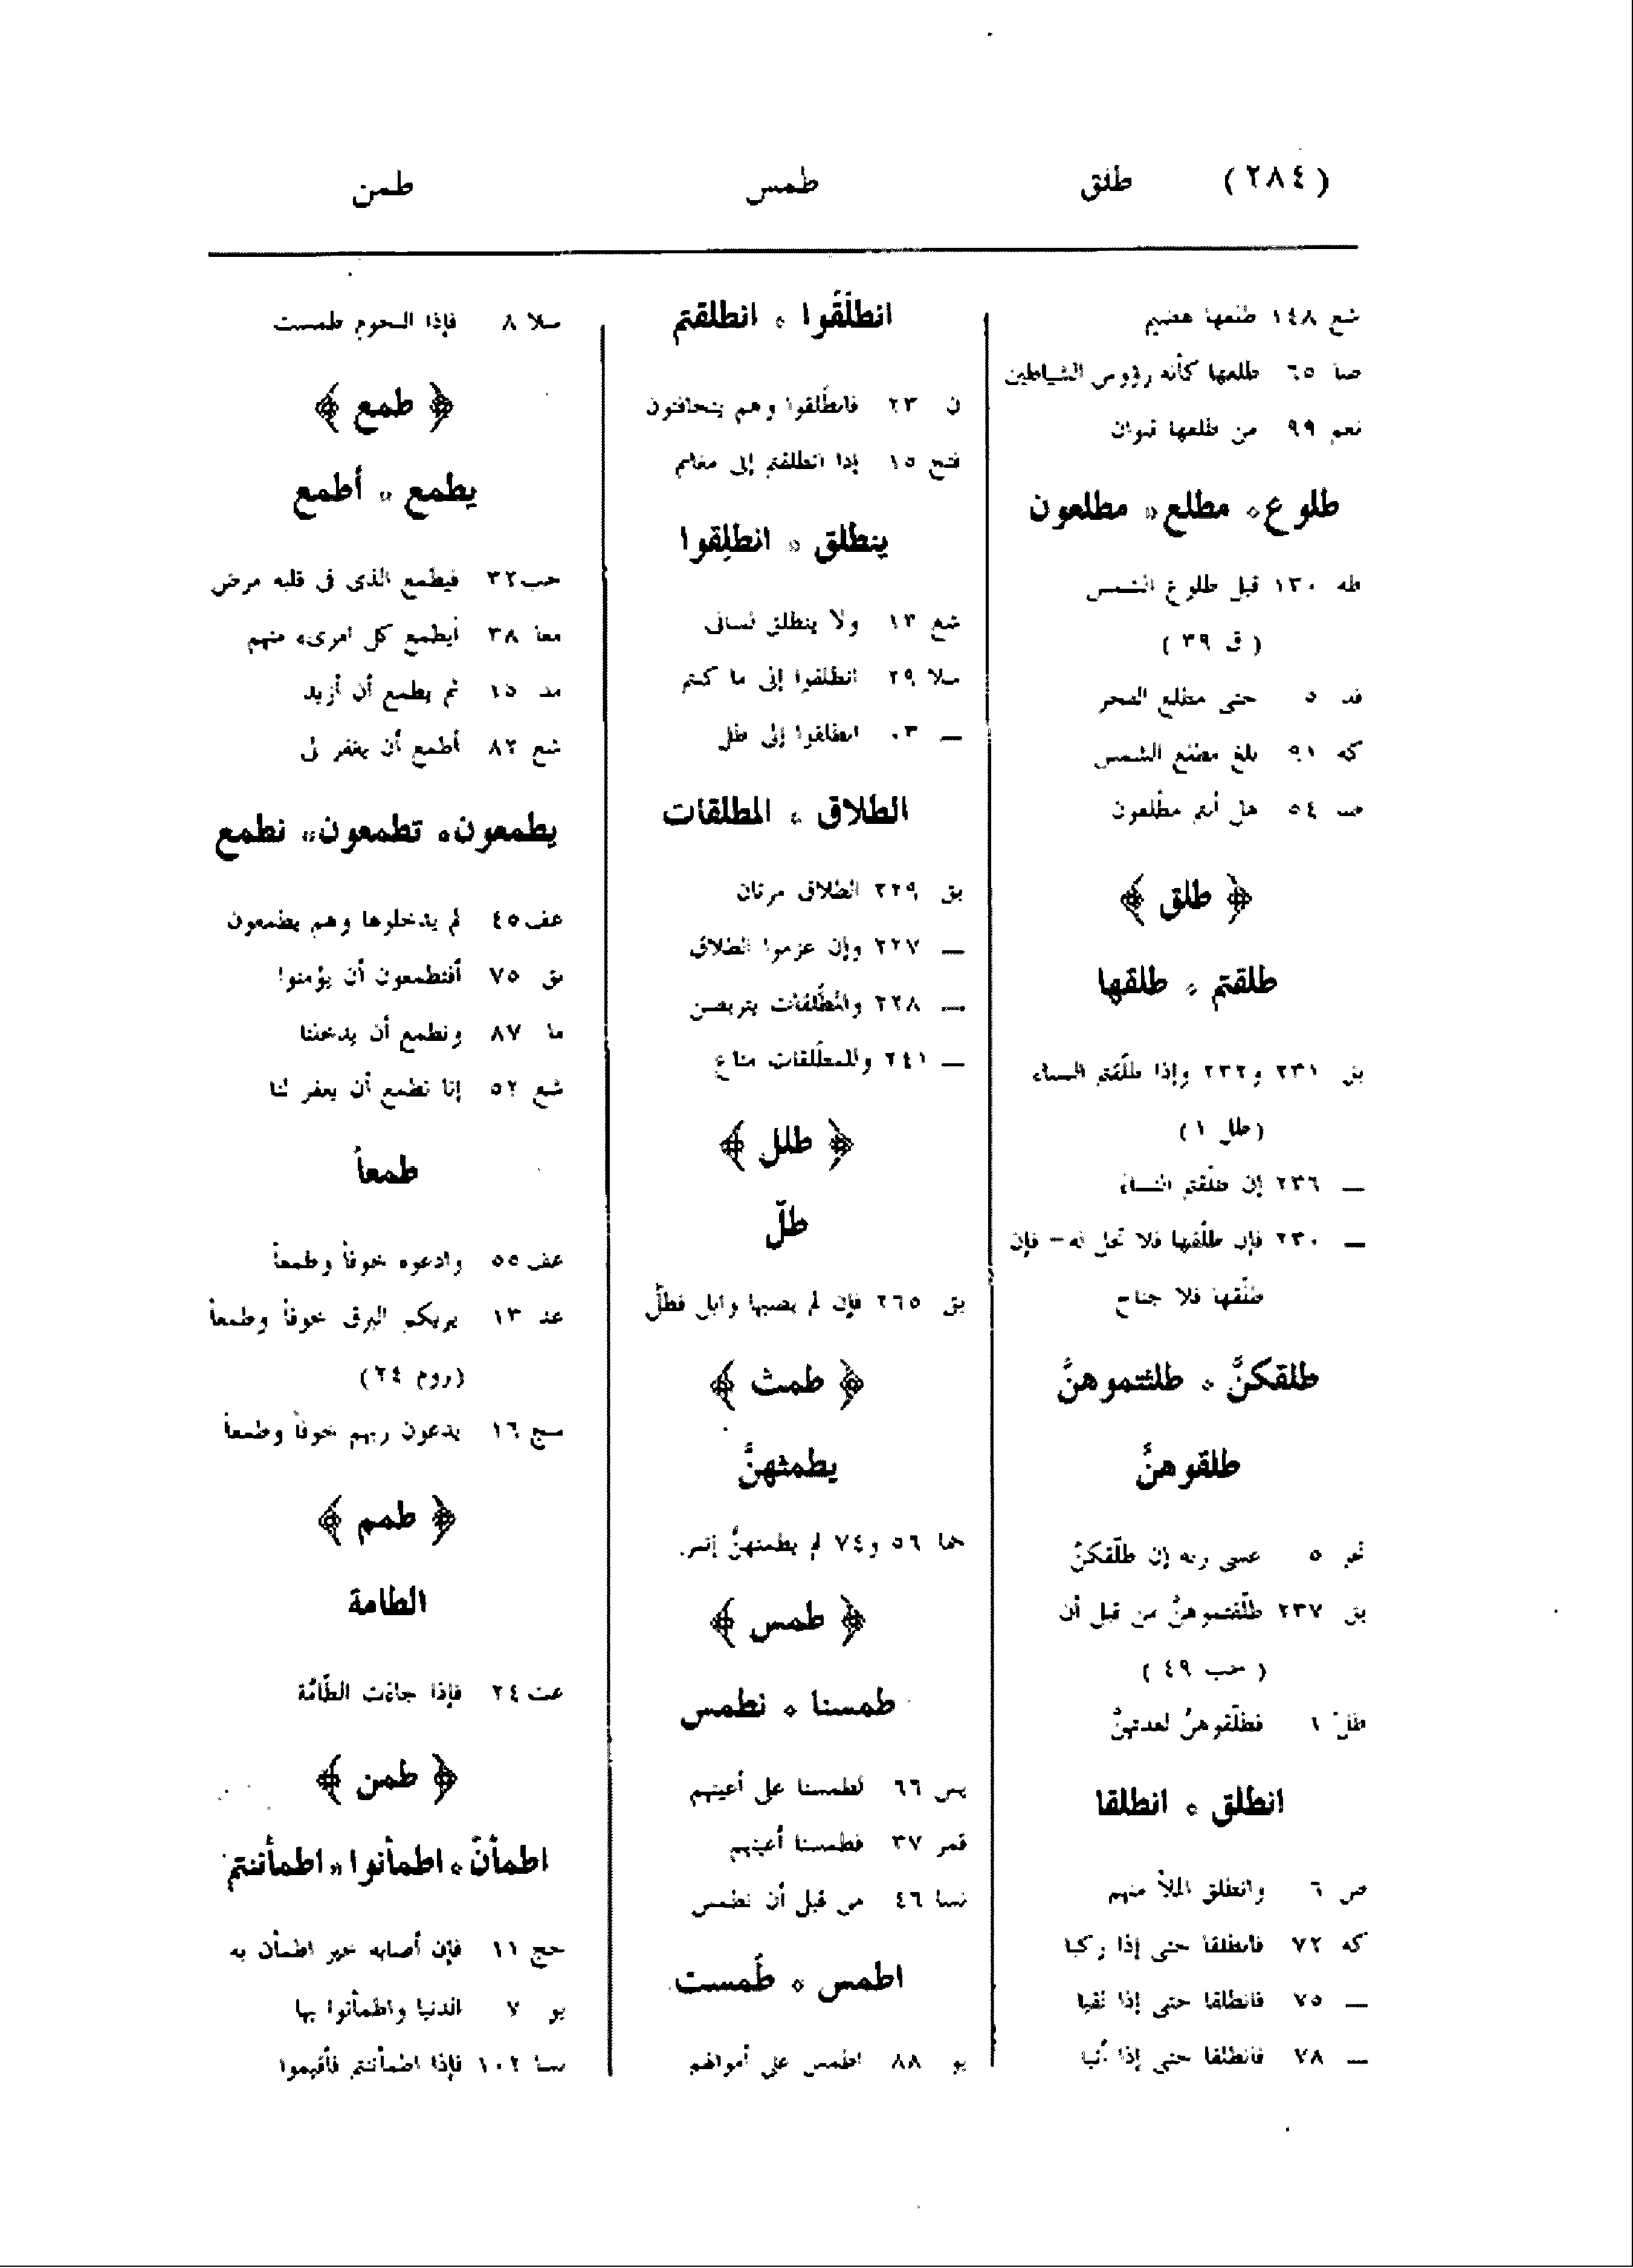 (٢٨٤) طلق طمس طمن
شع ١٤٨ طلعها هضيم
صا ٦٥ طلعها كأنه رؤوس الشياطين
نعم ٩٩ من طلعها قنوان
طلوع * مطلع * مطلعون
طه ١٣٠ قبل طلوع الشمس
(ق ٣٩)
قد ٥ حتى مطلع الفجر
كه ٩١ بلغ مطلع الشمس
صا ٥٤ هل أنتم مطّلعون
﴿ طلق ﴾
طلقتم * طلقها
بق ٢٣١ و٢٣٢ وإذا طلّقتم النساء
(طل ١)
— ٢٣٦ إن طلّقتم النساء
— ٢٣٠ فإن طلّقها فلا تحل له – فإن
طلّقها فلا جناح
طلقكنَّ * طلقتموهنَّ
طلقوهنَّ
تحر ٥ عسى ربه إن طلّقكنَّ
بق ٢٣٧ طلّقتموهنَّ من قبل أن
(حب ٤٩)
طل ١ فطلّقوهنَّ لعدتهنَّ
انطلق * انطلقا
ص ٦ وانطلق الملأ منهم
كه ٧٢ فانطلقا حتى إذا ركبا
— ٧٥ فانطلقا حتى إذا لقيا
— ٧٨ فانطلقا حتى إذا أتيا
انطلَقُوا * انطلقتم
ن ٢٣ فانطلَقوا وهم يتخافتون
فتح ١٥ إذا انطلقتم إلى مغانم
ينطلق * انطلِقوا
شع ١٣ ولا ينطلق لسانى
سلا ٢٩ انطلقوا إلى ما كنتم
— ٣٠ انطلقوا إلى ظل
الطلاق * المطلقات
بق ٢٢٩ الطلاق مرتان
— ٢٢٧ وإن عزموا الطلاق
— ٢٢٨ والمطلّقات يتربصن
— ٢٤١ وللمطلّقات متاع
﴿ طلل ﴾
طلّ
بق ٢٦٥ فإن لم يصبها وابل فطلٌّ
﴿ طمث ﴾
يطمثهنَّ
حما ٥٦ و٧٤ لم يطمثهنَّ إنس
﴿ طمس ﴾
طمسنا * نطمس
يس ٦٦ لطمسنا على أعينهم
قمر ٣٧ فطمسنا أعينهم
نسا ٤٦ من قبل أن نطمس
اطمس * طُمست
يو ٨٨ اطمس على أموالهم
سلا ٨ فإذا النجوم طمست
﴿ طمع ﴾
يطمع * أطمع
حب ٣٢ فيطمع الذى فى قلبه مرض
معا ٣٨ أيطمع كل امرىء منهم
مد ١٥ ثم يطمع أن أزيد
شع ٨٢ أطمع أن يغفر لى
يطمعون * تطمعون * نطمع
عف ٤٥ لم يدخلوها وهم يطمعون
بق ٧٥ أفتطمعون أن يؤمنوا
ما ٨٧ ونطمع أن يدخلنا
شع ٥٢ إنا نطمع أن يغفر لنا
طمعاً
عف ٥٥ وادعوه خوفاً وطمعاً
عد ١٣ يريكم البرق خوفاً وطمعاً
(روم ٢٤)
سج ١٦ يدعون ربهم خوفاً وطمعاً
﴿ طمم ﴾
الطامة
عت ٢٤ فإذا جاءت الطّامّة
﴿ طمن ﴾
اطمأنّ * اطمأنوا * اطمأننتم
حج ١١ فإن أصابه خير اطمأن به
يو ٧ الدنيا واطمأنوا بها
نسا ١٠٢ فإذا اطمأننتم فأقيموا